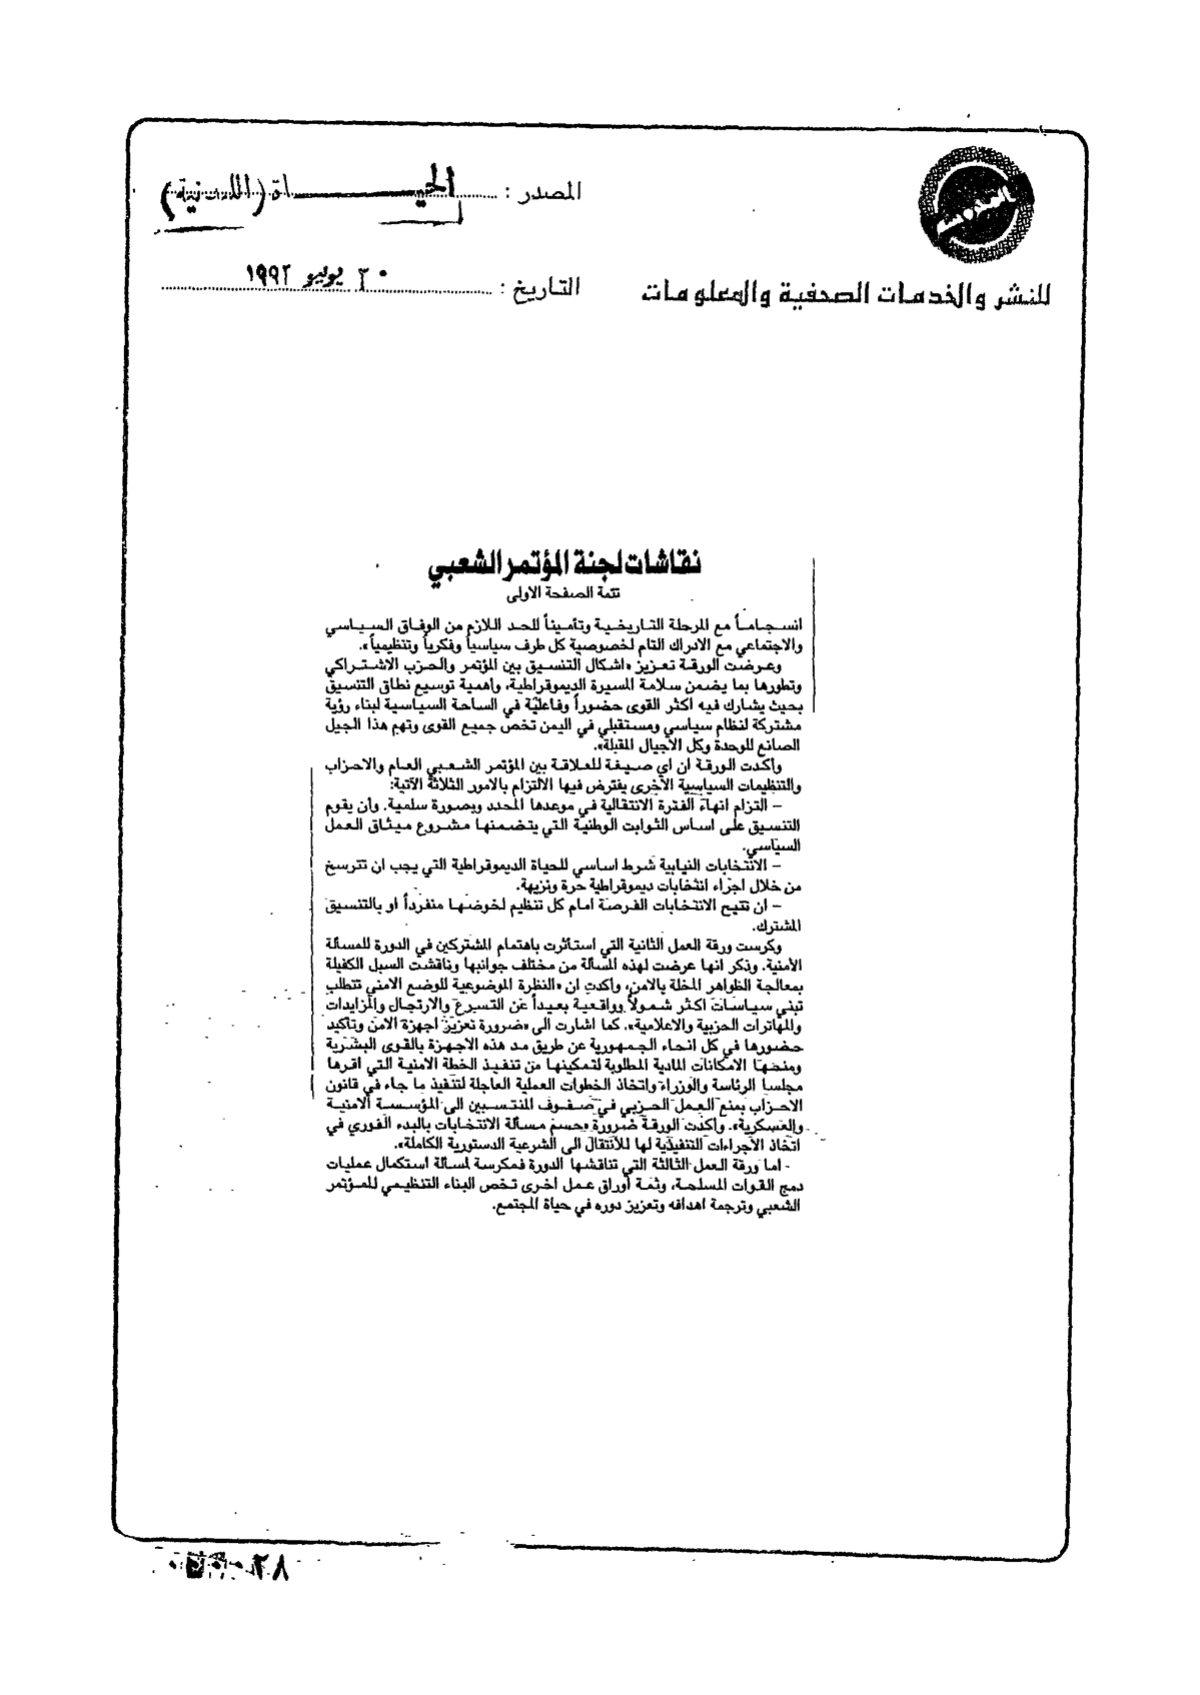 المصدر : الحيـــــاة (اللندنية)
للنشر والخدمات الصحفية والمعلومات
التاريخ : ٣٠ يونيو ١٩٩٢
نقاشات لجنة المؤتمر الشعبي
تتمة الصفحة الاولى
انسجاماً مع المرحلة التاريخية وتأميناً للحد اللازم من الوفاق السياسي
والاجتماعي مع الادراك التام لخصوصية كل طرف سياسياً وفكرياً وتنظيمياً».
وعرضت الورقة تعزيز «اشكال التنسيق بين المؤتمر والحزب الاشتراكي
وتطورها بما يضمن سلامة المسيرة الديموقراطية، واهمية توسيع نطاق التنسيق
بحيث يشارك فيه اكثر القوى حضوراً وفاعلية في الساحة السياسية لبناء رؤية
مشتركة لنظام سياسي ومستقبلي في اليمن تخص جميع القوى وتهم هذا الجيل
الصانع للوحدة وكل الاجيال المقبلة».
وأكدت الورقة ان اي صيغة للعلاقة بين المؤتمر الشعبي العام والاحزاب
والتنظيمات السياسية الأخرى يفترض فيها الالتزام بالامور الثلاثة الآتية:
– التزام انهاء الفترة الانتقالية في موعدها المحدد وبصورة سلمية. وأن يقوم
التنسيق على اساس الثوابت الوطنية التي يتضمنها مشروع ميثاق العمل
السياسي.
– الانتخابات النيابية شرط اساسي للحياة الديموقراطية التي يجب ان تترسخ
من خلال اجراء انتخابات ديموقراطية حرة ونزيهة.
– ان تتيح الانتخابات الفرصة امام كل تنظيم لخوضها منفرداً او بالتنسيق
المشترك.
وكرست ورقة العمل الثانية التي استأثرت باهتمام المشتركين في الدورة للمسألة
الأمنية. وذكر انها عرضت لهذه المسألة من مختلف جوانبها وناقشت السبل الكفيلة
بمعالجة الظواهر المخلة بالامن، وأكدت ان «النظرة الموضوعية للوضع الامني تتطلب
تبني سياسات اكثر شمولاً وواقعية بعيداً عن التسرع والارتجال والمزايدات
والمهاترات الحزبية والاعلامية». كما اشارت الى «ضرورة تعزيز اجهزة الامن وتأكيد
حضورها في كل انحاء الجمهورية عن طريق مد هذه الاجهزة بالقوى البشرية
ومنحها الامكانات المادية المطلوبة لتمكينها من تنفيذ الخطة الامنية التي اقرها
مجلسا الرئاسة والوزراء واتخاذ الخطوات العملية العاجلة لتنفيذ ما جاء في قانون
الاحزاب بمنع العمل الحزبي في صفوف المنتسبين الى المؤسسة الامنية
والعسكرية». وأكدت الورقة ضرورة «حسم مسألة الانتخابات بالبدء الفوري في
اتخاذ الاجراءات التنفيذية لها للانتقال الى الشرعية الدستورية الكاملة».
- اما ورقة العمل الثالثة التي تناقشها الدورة فمكرسة لمسألة استكمال عمليات
دمج القوات المسلحة، وثمة أوراق عمل اخرى تخص البناء التنظيمي للمؤتمر
الشعبي وترجمة اهدافه وتعزيز دوره في حياة المجتمع.